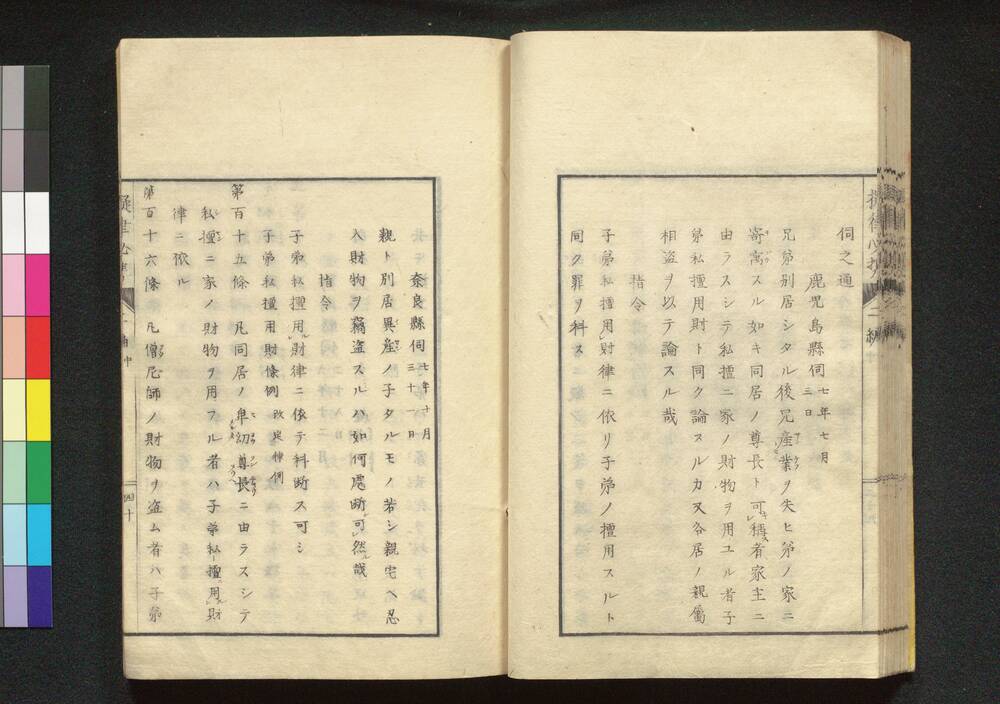 伺之通
鹿児島縣伺 七年七月三日
兄弟別居シタル後兄産業ヲ失ヒ弟ノ家ニ
寄寓スル如キ同居ノ尊長ト可稱者家主ニ
由ラスシテ私擅ニ家ノ財物ヲ用ユル者子
弟私擅用財ト同ク論スルカ又各居ノ親属
相盗ヲ以テ論スル哉
指令
子弟私擅用財律ニ依リ子弟ノ擅用スルト
同ク罪ヲ科ス
奈良縣伺 七年十月三十日
親ト別居異産ノ子タルモノ若シ親宅ヘ忍
入財物ヲ竊盗スルハ如何處断可然哉
指令
子弟私擅用財律ニ依テ料断ス可シ
子弟私擅用財條例 改定律例
第百十五條 凡同居ノ卑幼尊長ニ由ラスシテ
私擅ニ家ノ財物ヲ用フル者ハ子弟私擅用財
律ニ依ル
第百十六條 凡僧尼師ノ財物ヲ盗ム者ハ子弟
四十